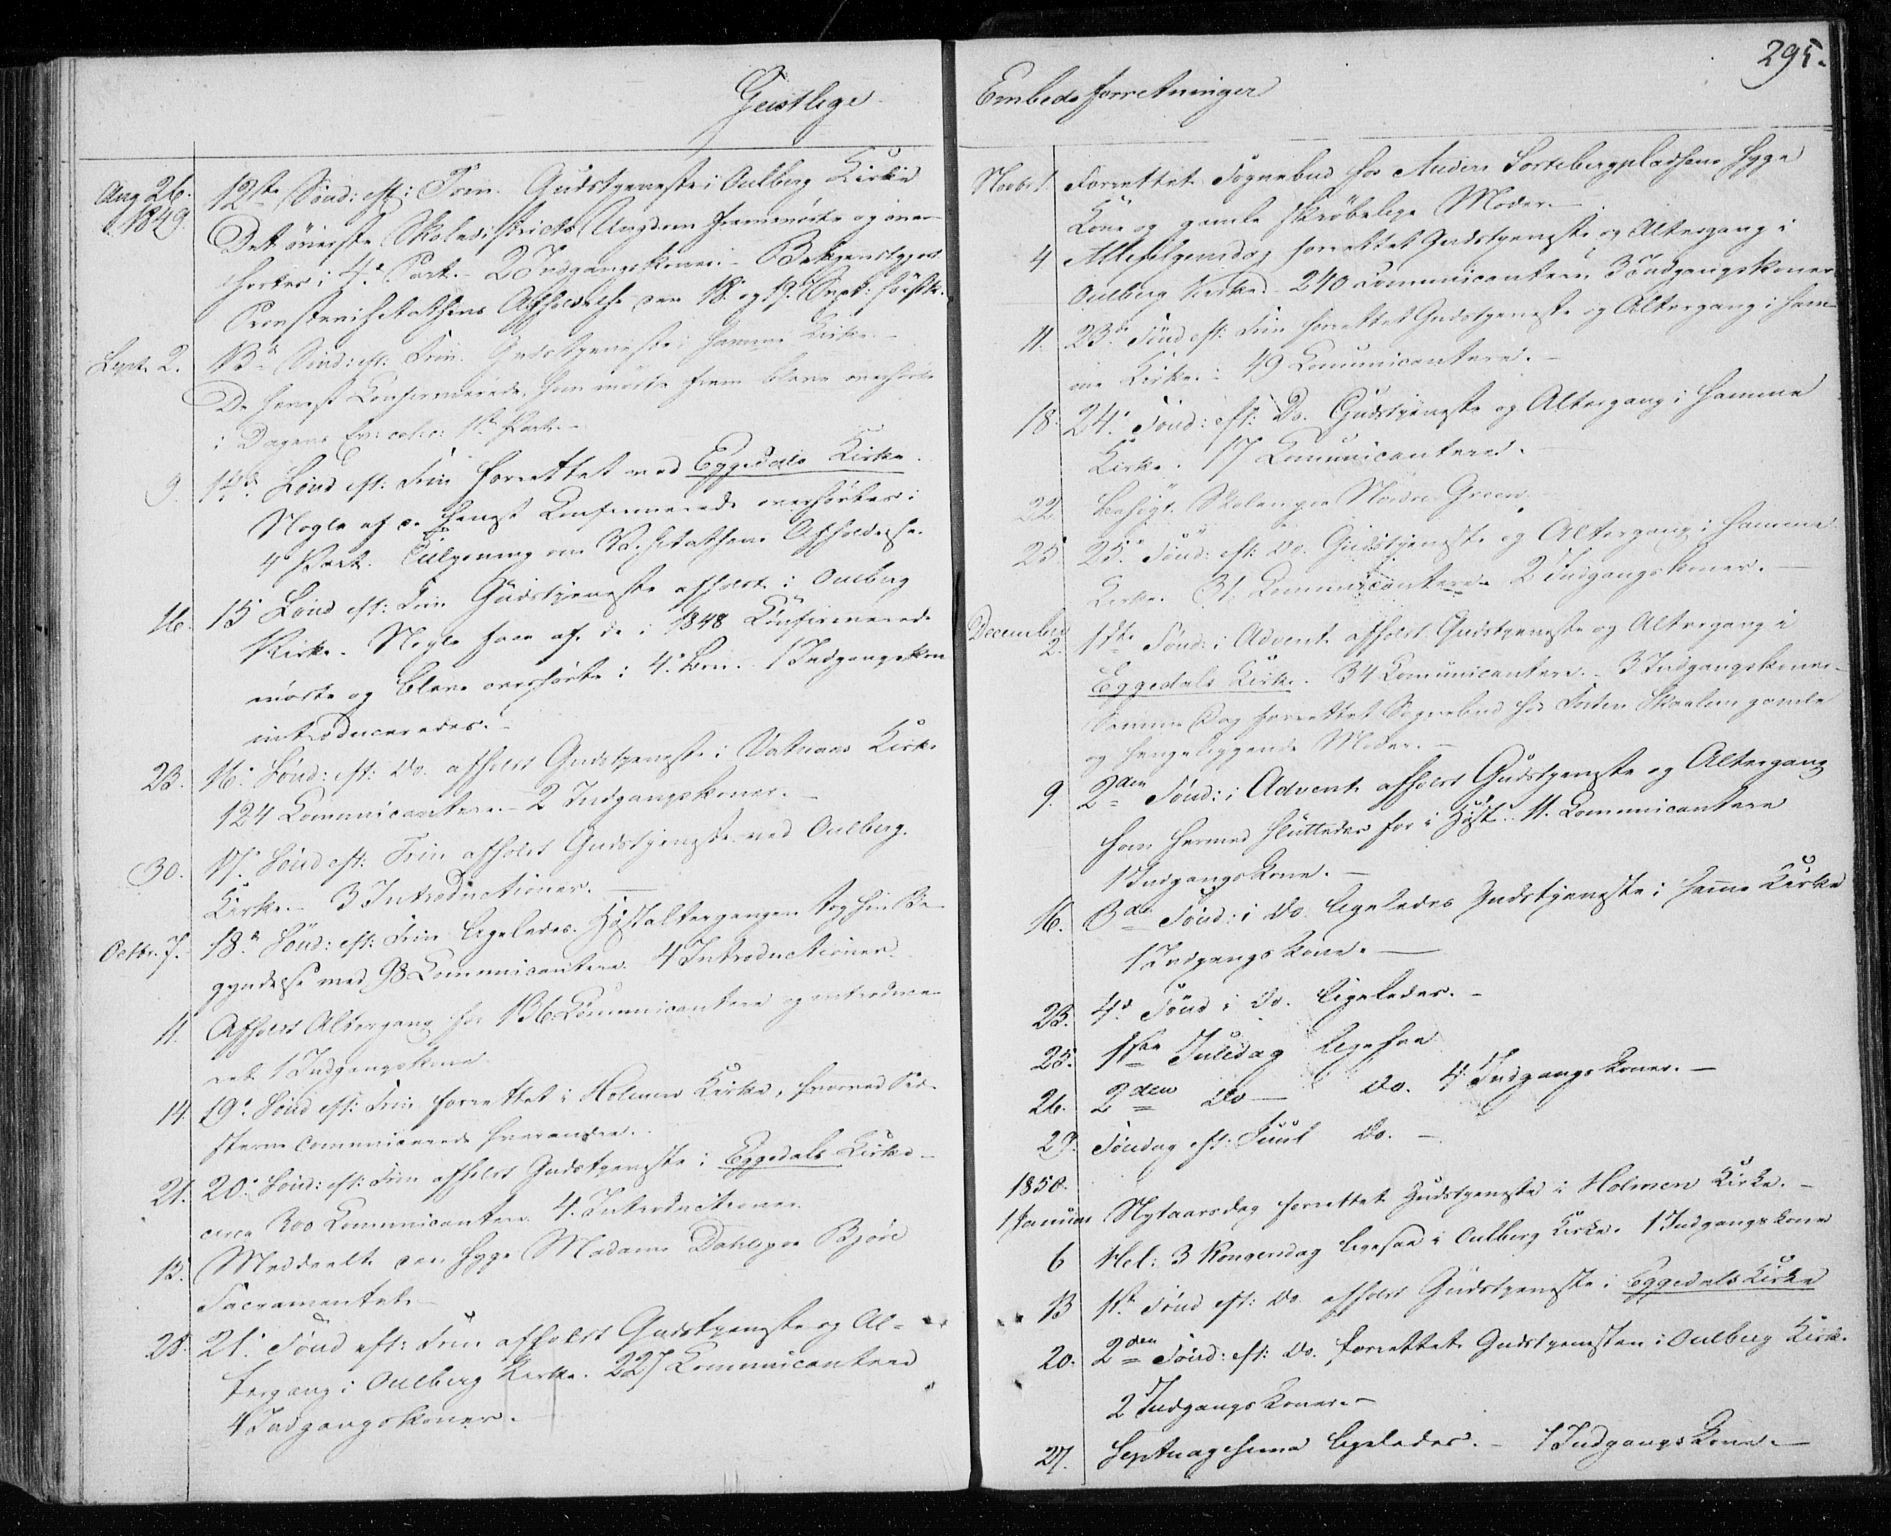 Geistlige
Aug 26. 12te Sönd: eft: Trin. Gudstjeneste i Oulberg Kirke
1849. Det överste Skoledistricts Ungdom fremmödte og over-
hörtes i 4de Part. 2 Indgangskoner. Bekjendtgjort
Afholdelse den 18 og 19 Sept:
Sept. 2. 13de Sönd: eft: Trin. Gudstjeneste i samme Kirke.
De Confirmerede, som mödte frem bleve overhörte
i Dagens
9. 14de Sönd eft: Trin forrettet ved Eggedals Kirke.
Nogle af de Confirmerede overhörtes i
4 Part. om Visitatsens Afholdelse.
16. 15 Sönd eft: Trin Gudstjeneste afholdt i Oulberg
Kirke. Nogle faae af de i 1848 Confirmerede
mödte og bleve overhörte i 4. 1 Indgangskone
introduceredes.
23. 16. Sönd: eft: Do. afholdt Gudstjeneste i Vatnaas Kirke
124 Communicantere. 2 Indgangskoner.
30. 17. Sönd eft: Trin afholdt Gudstjeneste ved Oulberg
Kirke. 3 Introductioner.
Octbr. 7. 18de Sönd: eft: Trin ligeledes. Höstaltergangen tog sin Be-
gyndelse med 98 Communicantere. 4 Introductioner.
11. Afholdt Altergang for 136 Communicantere og introduce-
ret 1 Indgangskone
14. 19. Sönd eft: Trin forrettet i Holmen Kirke, hvorved
communicerede hverandre.
21. 20. Sönd: eft: Trin afholdt Gudstjeneste i Eggedals Kirke
circa 300 Communicantere 4. Introductioner.
15. Meddeelt den syge Madame Dahl paa Björe
Sacramentet.
28. 21. Sönd eft: Trin afholdt Gudstjeneste og Al-
tergang i Oulberg Kirke. 227 Communicantere
4 Indgangskoner.
Embedsforretninger
295.
Novbr. 1. Forrettet Sognebud hos Anders Sortebergpladsens syge
Kone og gamle skröbelige Moder.
4 Allehelgensdag forrettet Gudstjeneste og Altergang i
Oulberg Kirke. 240 Communicantere. 3 Indgangskoner
11. 23de Sönd eft: Trin forrettet Gudstjeneste og Altergang i sam-
me Kirke. 49 Communicantere.
18. 24. Sönd: eft: Do. Gudstjeneste og Altergang i samme
Kirke. 17 Communicantere.
22. Besögt Skolen paa Nordre Green.
25 25. Sönd: eft: Do. Gudstjeneste og Altergang i samme
Kirke. 31. Communicantere. 2 Indgangskoner.
December
2. 1ste Sönd: i Advent afholdt Gudstjeneste og Altergang i
Eggedals Kirke. 34 Communicantere. 3 Indgangskoner
Samme Dag forrettet Sognebud hos Skaalens gamle
og sengeliggende Moder.
9. 2den Sönd: i Advent afholdt Gudstjeneste og Altergang
som hermed sluttedes for i Höst. 11. Communicantere
1 Indgangskone.
16. 3die Sönd: i Do. ligeledes Gudstjeneste i samme Kirke
1 Indgangskone.
23. 4de Sönd i Do. ligeledes.
25. 1ste Juledag ligesaa
26. 2den Do Do. 4 Indgangskoner.
29. Söndag eft: Juul Do.
1850.
1 Januar Nytaarsdag forrettet Gudstjeneste i Holmen Kirke.
6 Hel: 3 Kongersdag ligesaa i Oulberg Kirke. 1 Indgangskone
13 1ste Sönd eft: Do. afholdt Gudstjeneste i Eggedals Kirke
20. 2den Sönd: eft: Do. forrettet Gudstjenesten i Oulberg Kirke.
2 Indgangskoner.
27. Septuagesima ligeledes. 1 Indgangskone.